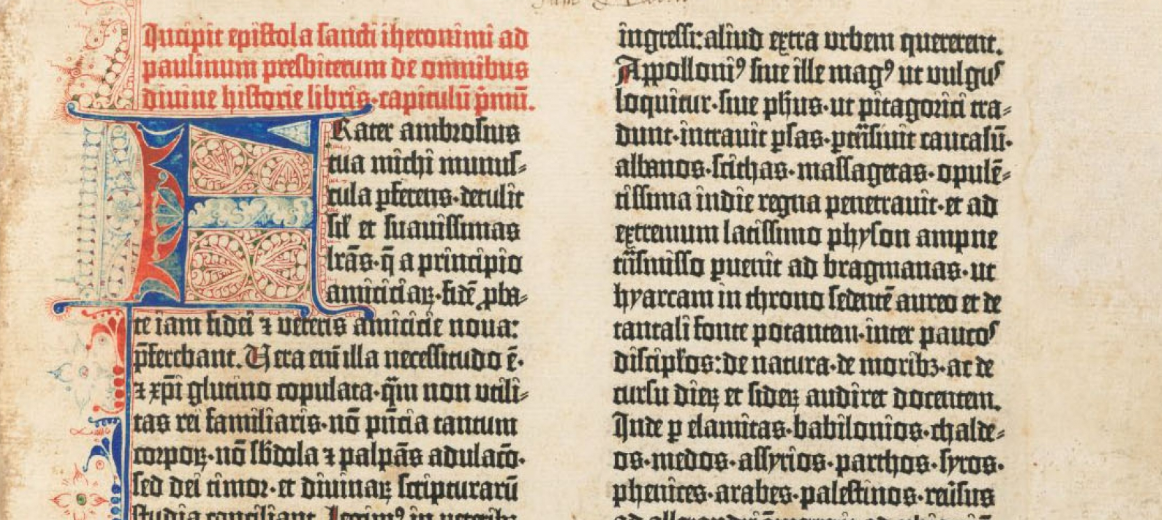 Incipit epistola sancti iheronimi ad
paulinum presbiterum de omnibus
divine historie libris·capitulū p̄mū.
FRater ambrosius
tua michi munus-
cula pferens·detulit
sil̄ et suavissimas
lrās·q̄ a principio
amiciciaꝝ·fidē ꝓba-
te iam fidei ⁊ veteris amicicie nova:
p̄ferebant. Vera em̄ illa necessitudo ē·
⁊ xp̄i glutino copulata·qm̄ non utili-
tas rei familiaris·nō pn̄tia tantum
corpoꝝ·nō sb̄dola ⁊ palpās adulac̄o·
sed dei timor·et divinaꝝ scripturarū
studia conciliant. Legimꝰ in veteribꝫ
ingressi:aliud extra urbem quererent.
Appolloniꝰ sive ille magꝰ ut vulgus
loquitur·sive ph̄us·ut pitagorici tra-
dunt·intravit ꝑsas·ꝑtrāsivit caucasū·
albanos·scithas·massagetas·opulē-
tissima indie regna penetravit·et ad
extremum latissimo physon ampne
trāsmisso ꝑvenit ad bragmanas·ut
hyarcam in throno sedentē aureo et de
tantali fonte potantem·inter paucos
discipl̄os:de natura·de moribꝫ·ac de
cursu dieꝝ et sideꝝ audiret docentem.
Inde ꝑ elamitas·babilonios·chalde-
os·medos·assyrios·parthos·syros·
phenices·arabes·palestinos·reūsus
ad allexandriā